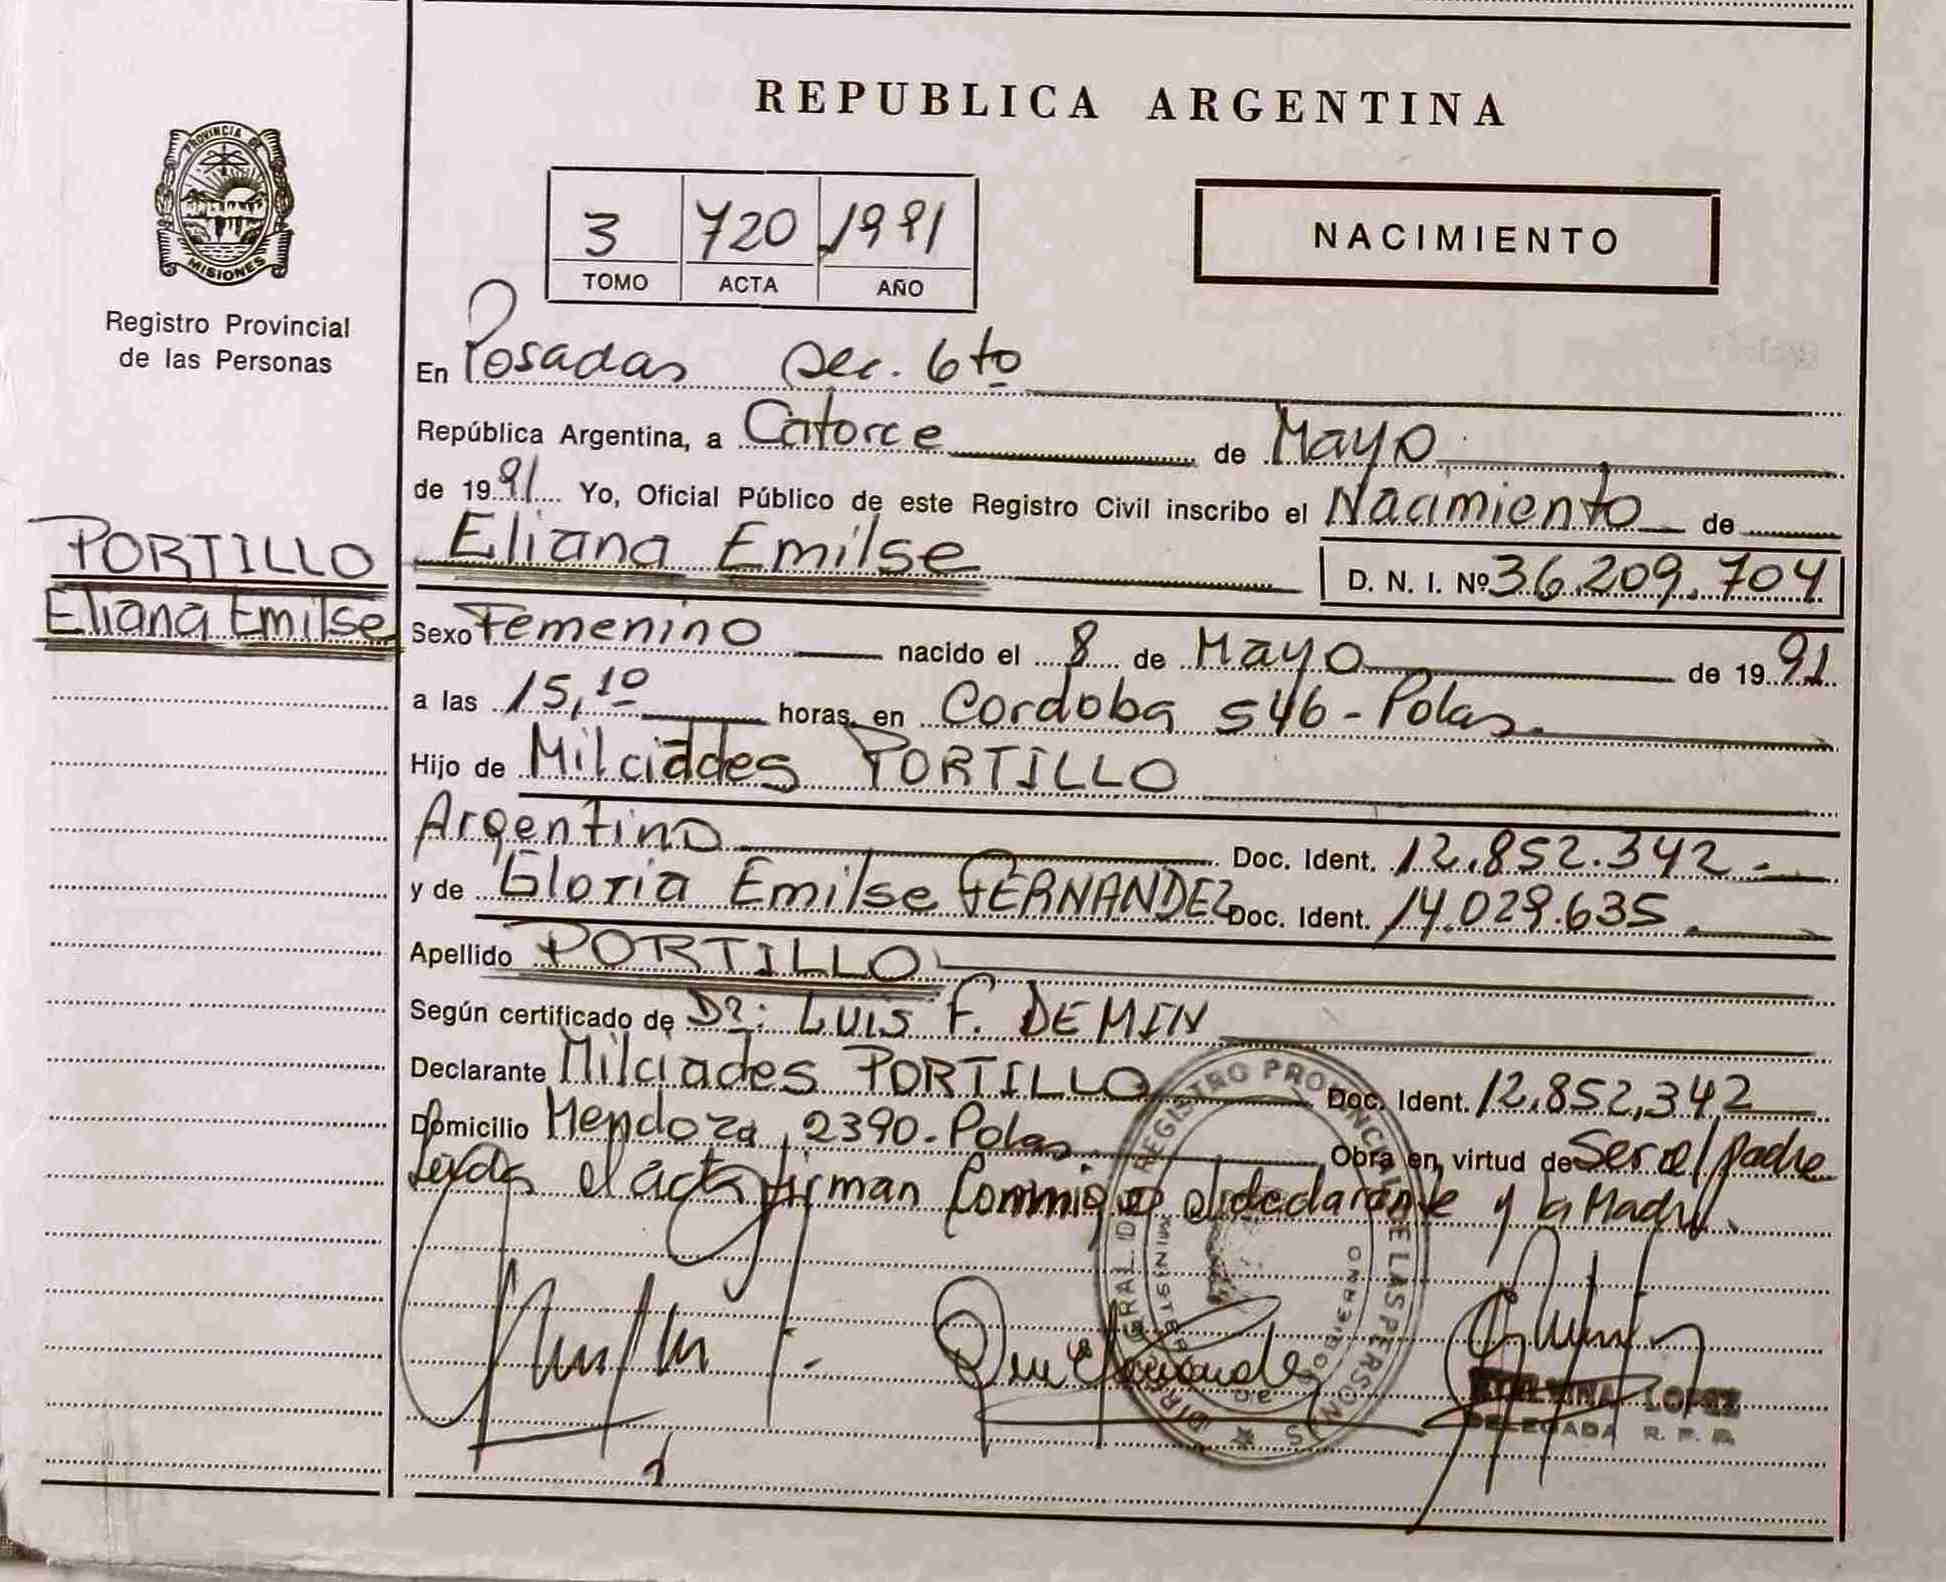 REPUBLICA ARGENTINA
PROVINCIA DE
MISIONES
Registro Provincial
de las Personas
3 720 1991
TOMO ACTA AÑO
NACIMIENTO
En Posadas sec. 6to
República Argentina, a Catorce de Mayo
de 1991 Yo, Oficial Público de este Registro Civil inscribo el Nacimiento de
PORTILLO
Eliana Emilse
Eliana Emilse D. N. I. Nº 36.209.704
Sexo Femenino nacido el 8 de Mayo de 1991
a las 15,10 horas, en Cordoba 546 - Pdas.
Hijo de Milciddes PORTILLO
Argentino Doc. Ident. 12.852.342.-
y de Gloria Emilse FERNANDEZ Doc. Ident. 14.029.635.
Apellido PORTILLO
Según certificado de Dr: LUIS F. DEMIN
Declarante Milciades PORTILLO Doc. Ident. 12,852,342
Domicilio Mendoza 2390 - Pdas. Obra en virtud de Ser el padre
Leida el acta firman Conmigo el declarante y la Madre.
REGISTRO PROVINCIAL DE LAS PERSONAS
LOPEZ
DELEGADA R. P. P.